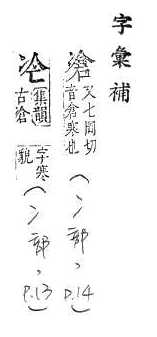 字彙補
凔又七岡切音倉寒也(冫部, P.14)
集韻古滄字寒貌(冫部, P.13)